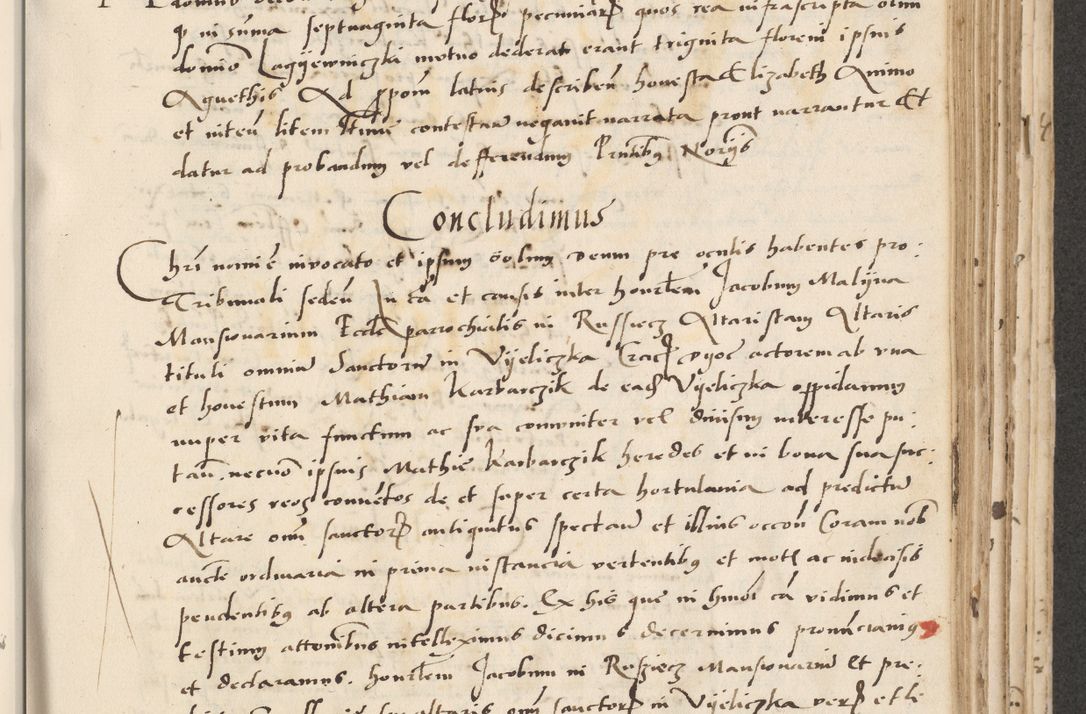 q̃ in sum̃a septuaginta floreɲ pecuniarɲ quos rea infrascripta olim
domino Lagyewniczki mutuo dederat erant triginta floreni ipsius
Agnethis Ad ꝓpoм̃ latius describeñ honesta Elizabeth Animo
et inteñ litem contestañ negavit narrata prout narrantur Et
datur ad probandum vel defferendum Pñtibus Noriis
Concludimus
Chri nomine invocato et ipsum solum deum pre oculis habentes pro:
Tribunali sedeñ In cã et causis inter honorlem Jacobum Maliyna
Mansionarium Eccle parrochialis in Russiecz Altaristam Altaris
tituli omniũ Sanctorũ in Vyeliczka Crac̃ dyoc̃ actorem ab una
et honestum Mathiam Karbarczik de eadẽ Vyeliczka oppidanum
nuper vita functum ac sua comuniter vel divisim interesse pu:
tañ necnõ ipsius Mathie Karbarczik heredes et in bona sua suc:
cessores reos convẽtos de et super certa hortulania ad predictũ
Altare oм̃ sanctorɲ antiquitus spectañ et illius occoñ Coram nob
aucte ordinaria in prima instancia vertentibus et mot̃ ac indecisis
pendentibus ab altera partibus. Ex his que in hmõi cã vidimus et
testium attonibus intelleximus dicimus decernimus pronũcciamus
et declaramus. honorlem Jacobum in Rusziecz Mansionariũ Et pre:
altaris oм̃ sanctorɲ in Vyeliczka verɲ et le